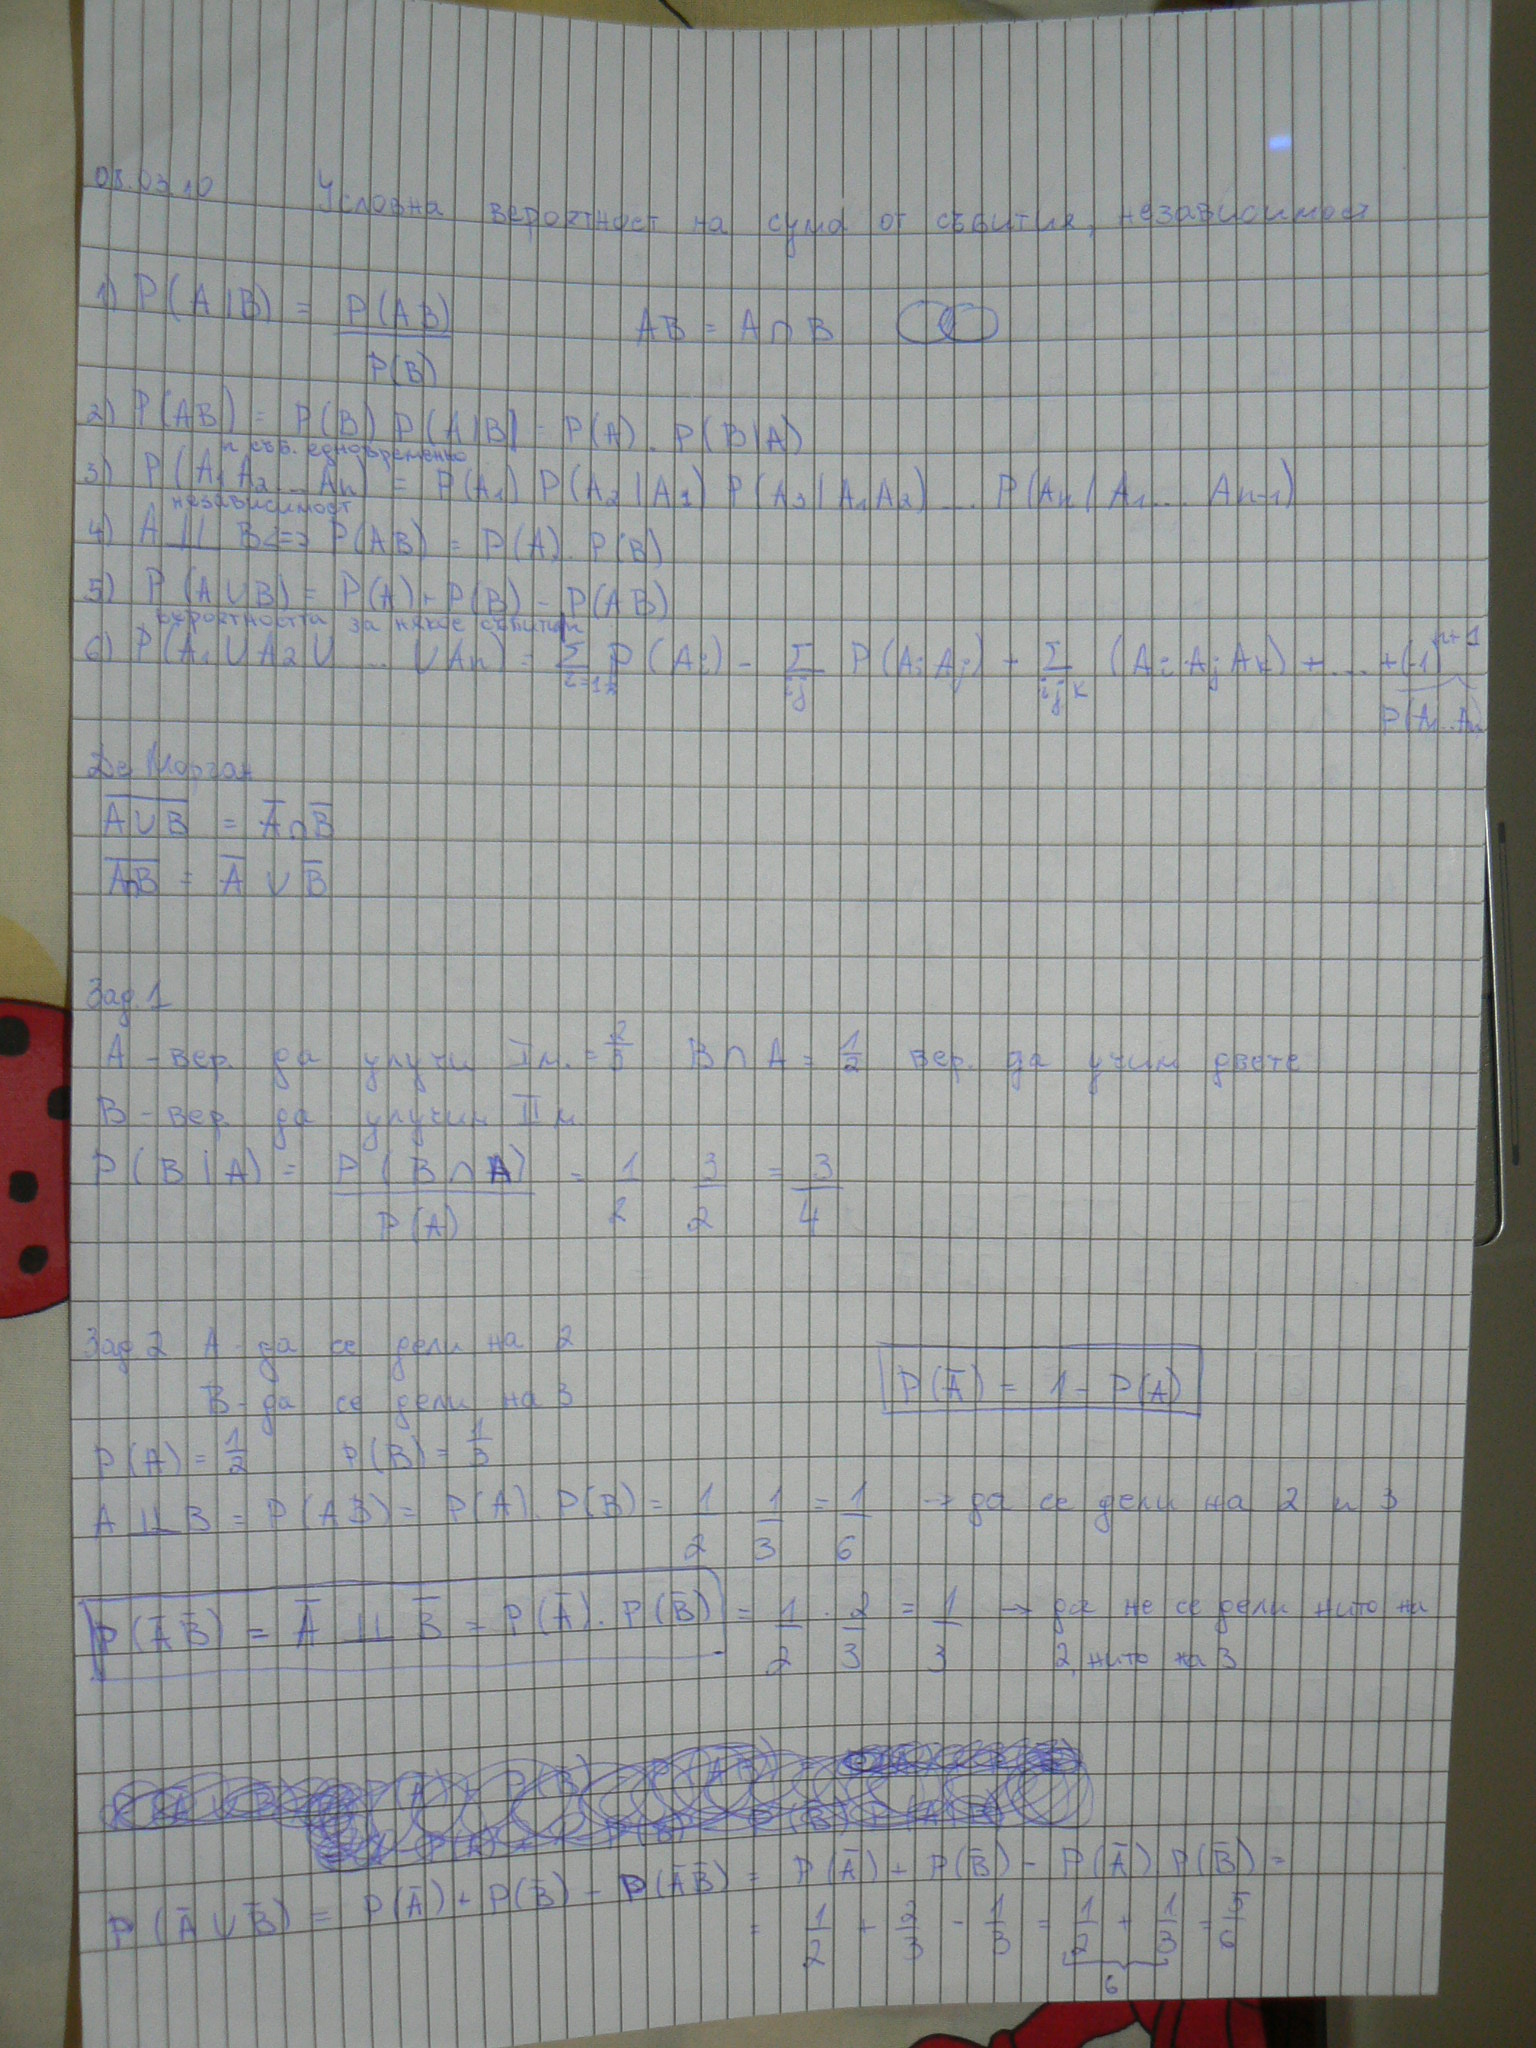 08.03.10 Условна вероятност на сума от събития, независимост
1) P(A|B) = P(AB) / P(B) AB = A∩B
2) P(AB) = P(B) P(A|B) = P(A). P(B|A)
n съб. едновременно
3) P(A₁A₂ ... Aₙ) = P(A₁) P(A₂|A₁) P(A₃|A₁A₂) ... P(Aₙ|A₁... Aₙ₋₁)
независимост
4) A ⊥⊥ B <=> P(AB) = P(A). P(B)
5) P(A∪B) = P(A)+P(B) - P(AB)
вероятността за някое събитие
6) P(A₁∪A₂∪ ... ∪Aₙ) = Σ P(Aᵢ) - Σ P(AᵢAⱼ) + Σ (AᵢAⱼAₖ) + ... + (-1)ⁿ⁺¹
i=1 ij ijk P(A₁...Aₙ)
Де Морган
A̅∪̅B̅ = A̅∩B̅
A̅∩̅B̅ = A̅ ∪ B̅
Зад.1
A - вер. да улучи I м. = 2/3 B∩A = 1/2 вер. да учим двете
B - вер. да улучим II м.
P(B|A) = P(B∩A) / P(A) = 1/2 . 3/2 = 3/4
Зад 2 A - да се дели на 2
B - да се дели на 3
P(A̅) = 1 - P(A)
P(A) = 1/2 P(B) = 1/3
A ⊥⊥ B = P(AB) = P(A). P(B) = 1/2 1/3 = 1/6 → да се дели на 2 и 3
P(A̅B̅) = A̅ ⊥⊥ B̅ = P(A̅). P(B̅) = 1/2 . 2/3 = 1/3 → да не се дели нито на
2, нито на 3
P(A̅∪B̅) = P(A̅)+P(B̅) - P(A̅B̅) = P(A̅)+P(B̅) - P(A̅) P(B̅) =
= 1/2 + 2/3 - 1/3 = 1/2 + 1/3 = 5/6
6